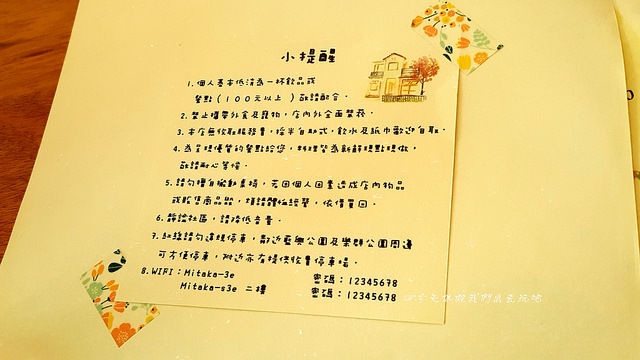 小提醒
1.個人基本低消為一杯飲品或
餐點(100元以上)敬請配合。
2.禁止攜帶外食及寵物,店內外全面禁菸。
3.本店無收取服務費,採半自助式,飲水及紙巾歡迎自取。
4.為呈現優質的餐點給您,料理皆為新鮮現點現做,
敬請耐心等候。
5.請勿擅自搬動桌椅,若因個人因素造成店內物品
或販售商品毀,煩請體恤經營,依價買回。
6.靜論社區,請降低音量。
7.紅線請勿違規停車,鄰近藍興公園及樂群公園周邊
可方便停車,附近亦有提供收費停車場。
8.WIFI:Mitaka-3e 密碼:12345678
Mitaka-s3e 二樓 密碼:12345678